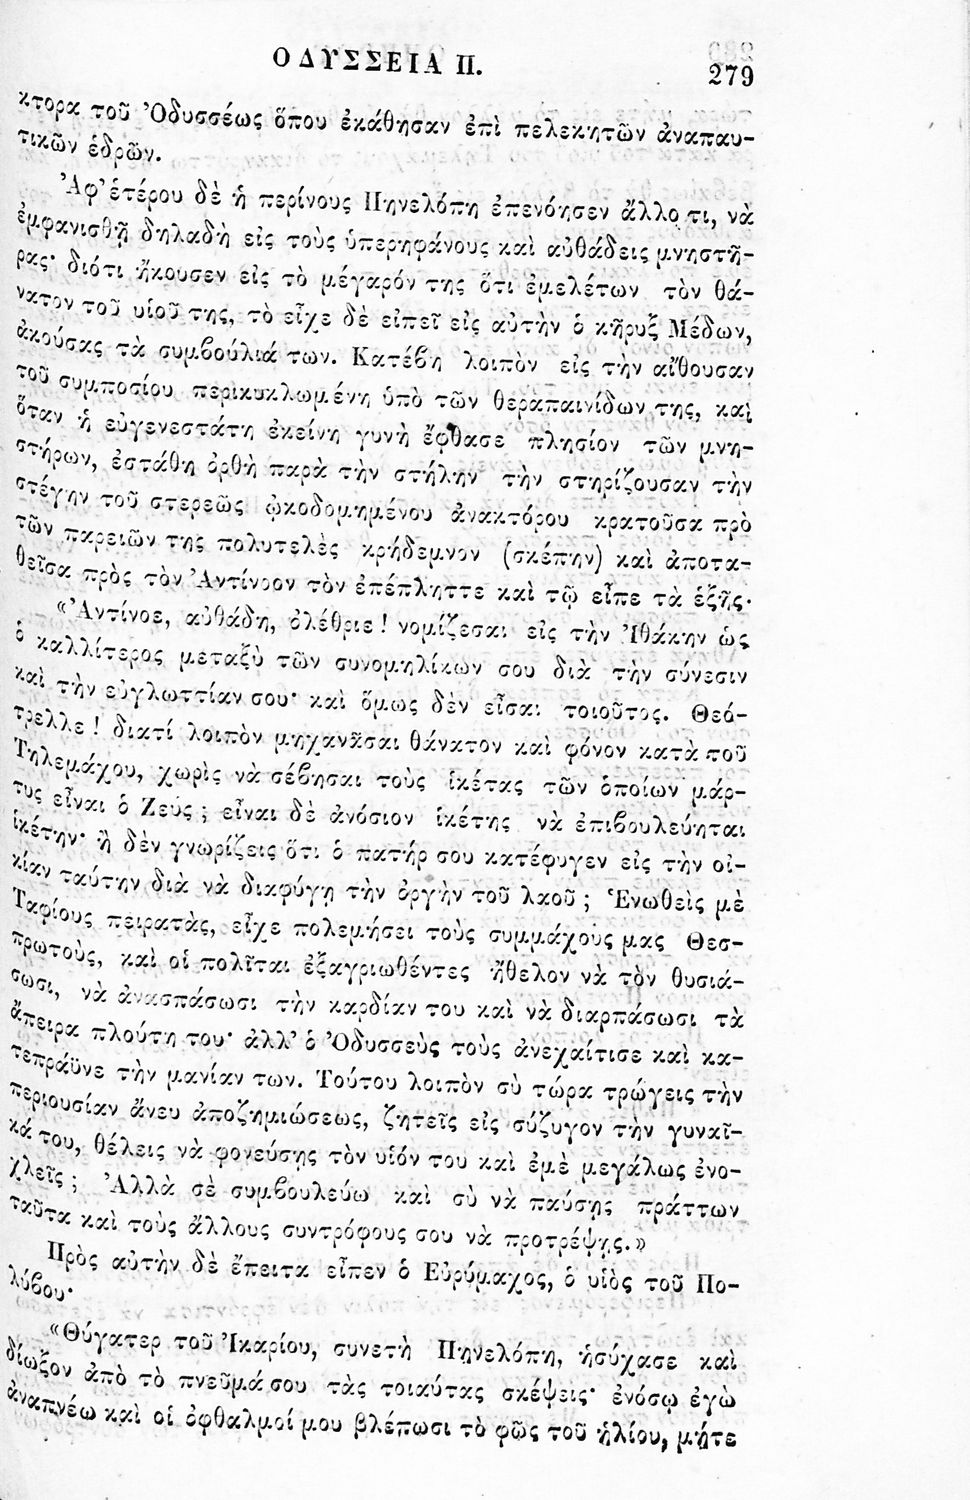 ΟΔΥΣΣΕΙΑ Π.
279
κτορα τοῦ Ὀδυσσέως ὅπου ἐκάθησαν ἐπὶ πελεκητῶν ἀναπαυ-
τικῶν ἑδρῶν.
Ἀφ' ἑτέρου δὲ ἡ περίνους Πηνελόπη ἐπενόησεν ἄλλο τι, νὰ
ἐμφανισθῇ δηλαδὴ εἰς τοὺς ὑπερηφάνους καὶ αὐθάδεις μνηστῆ-
ρας· διότι ἤκουσεν εἰς τὸ μέγαρόν της ὅτι ἐμελέτων τὸν θά-
νατον τοῦ υἱοῦ της, τὸ εἶχε δὲ εἰπεῖ εἰς αὐτὴν ὁ κῆρυξ Μέδων,
ἀκούσας τὰ συμβούλιά των. Κατέβη λοιπὸν εἰς τὴν αἴθουσαν
τοῦ συμποσίου περικυκλωμένη ὑπὸ τῶν θεραπαινίδων της, καὶ
ὅταν ἡ εὐγενεστάτη ἐκείνη γυνὴ ἔφθασε πλησίον τῶν μνη-
στήρων, ἐστάθη ὀρθὴ παρὰ τὴν στήλην τὴν στηρίζουσαν τὴν
στέγην τοῦ στερεῶς ᾠκοδομημένου ἀνακτόρου κρατοῦσα πρὸ
τῶν παρειῶν της πολυτελὲς κρήδεμνον (σκέπην) καὶ ἀποτα-
θεῖσα πρὸς τὸν Ἀντίνοον τὸν ἐπέπληττε καὶ τῷ εἶπε τὰ ἑξῆς·
«Ἀντίνοε, αὐθάδη, ὀλέθριε! νομίζεσαι εἰς τὴν Ἰθάκην ὡς
ὁ καλλίτερος μεταξὺ τῶν συνομηλίκων σου διὰ τὴν σύνεσιν
καὶ τὴν εὐγλωττίαν σου· καὶ ὅμως δὲν εἶσαι τοιοῦτος. Θεό-
τρελλε! διατί λοιπὸν μηχανᾶσαι θάνατον καὶ φόνον κατὰ τοῦ
Τηλεμάχου, χωρὶς νὰ σέβησαι τοὺς ἱκέτας τῶν ὁποίων μάρ-
τυς εἶναι ὁ Ζεύς; εἶναι δὲ ἀνόσιον ἱκέτης νὰ ἐπιβουλεύηται
ἱκέτην· ἢ δὲν γνωρίζεις ὅτι ὁ πατήρ σου κατέφυγεν εἰς τὴν οἰ-
κίαν ταύτην διὰ νὰ διαφύγῃ τὴν ὀργὴν τοῦ λαοῦ; Ἑνωθεὶς μὲ
Ταφίους πειρατὰς, εἶχε πολεμήσει τοὺς συμμάχους μας Θεσ-
πρωτοὺς, καὶ οἱ πολῖται ἐξαγριωθέντες ἤθελον νὰ τὸν θυσιά-
σωσι, νὰ ἀνασπάσωσι τὴν καρδίαν του καὶ νὰ διαρπάσωσι τὰ
ἄπειρα πλούτη του· ἀλλ' ὁ Ὀδυσσεὺς τοὺς ἀνεχαίτισε καὶ κα-
τεπράϋνε τὴν μανίαν των. Τούτου λοιπὸν σὺ τώρα τρώγεις τὴν
περιουσίαν ἄνευ ἀποζημιώσεως, ζητεῖς εἰς σύζυγον τὴν γυναῖ-
κά του, θέλεις νὰ φονεύσῃς τὸν υἱόν του καὶ ἐμὲ μεγάλως ἐνο-
χλεῖς; Ἀλλὰ σὲ συμβουλεύω καὶ σὺ νὰ παύσῃς πράττων
ταῦτα καὶ τοὺς ἄλλους συντρόφους σου νὰ προτρέψῃς.»
Πρὸς αὐτὴν δὲ ἔπειτα εἶπεν ὁ Εὐρύμαχος, ὁ υἱὸς τοῦ Πο-
λύβου·
«Θύγατερ τοῦ Ἰκαρίου, συνετὴ Πηνελόπη, ἡσύχασε καὶ
δίωξον ἀπὸ τὸ πνεῦμά σου τὰς τοιαύτας σκέψεις· ἐνόσῳ ἐγὼ
ἀναπνέω καὶ οἱ ὀφθαλμοί μου βλέπωσι τὸ φῶς τοῦ ἡλίου, μήτε